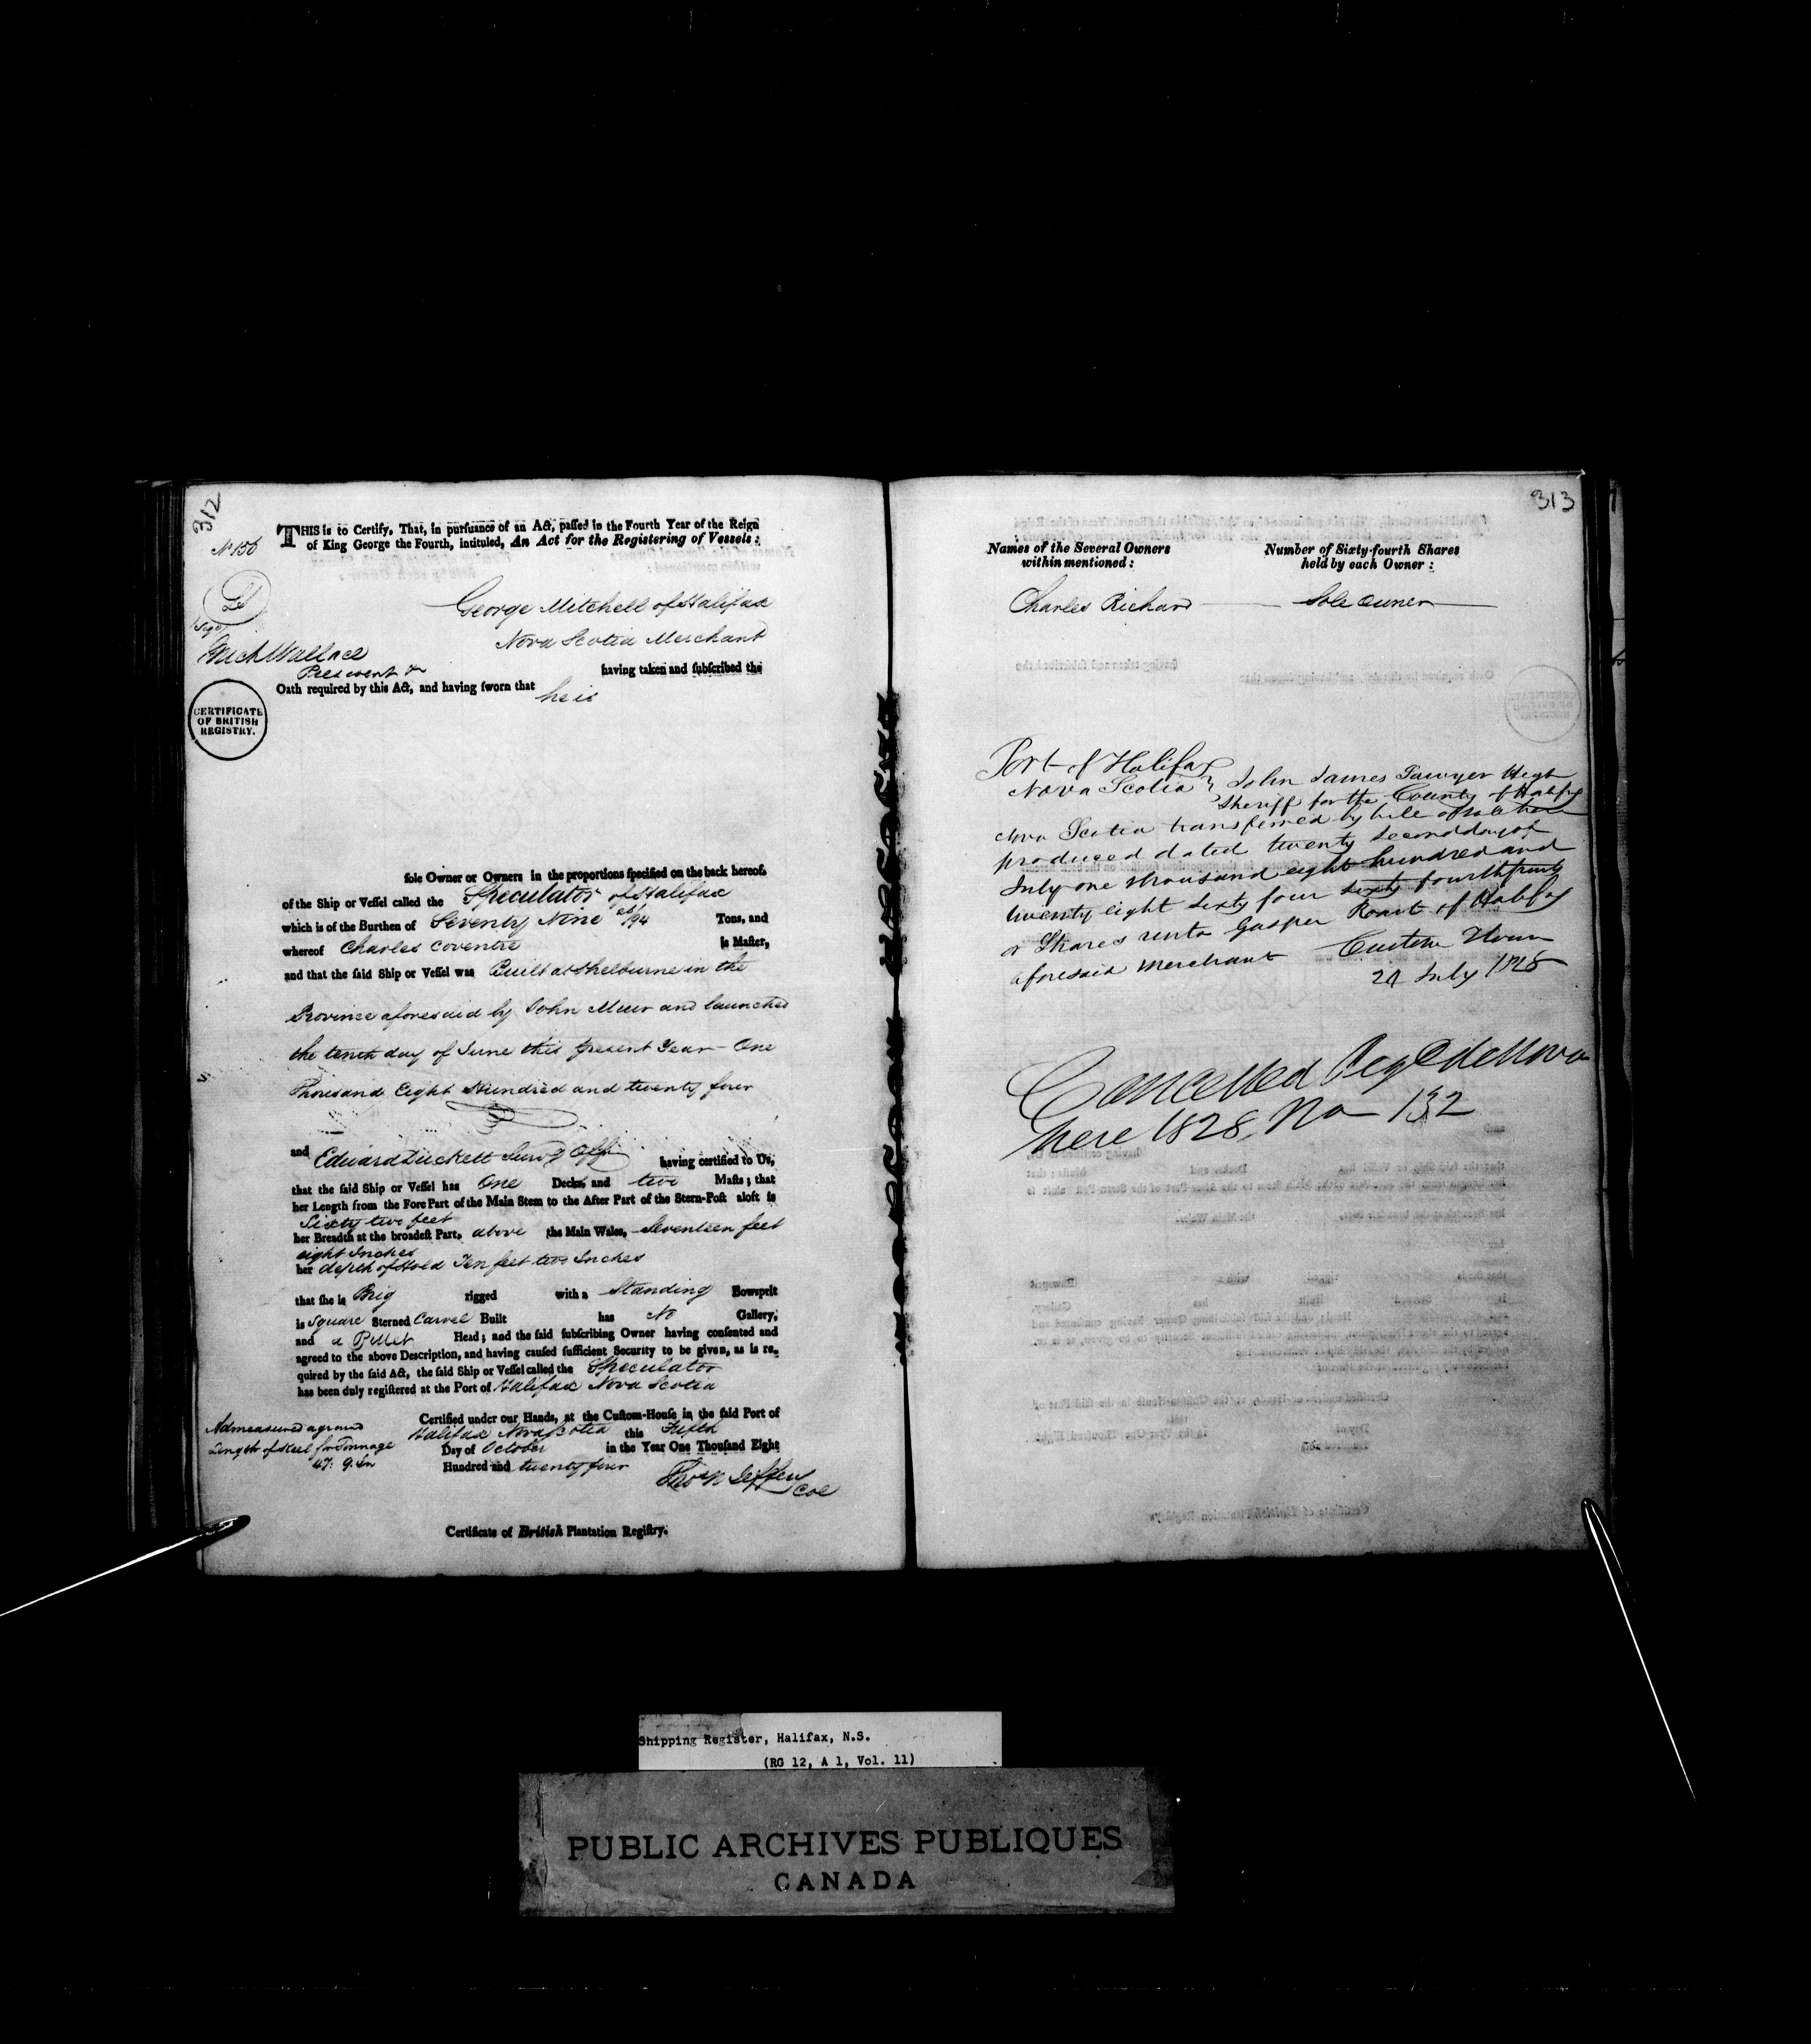 312
No 156
THIS is to Certify, That, in pursuance of an Act, passed in the Fourth Year of the Reign
of King George the Fourth, intituled, An Act for the Registering of Vessels:
George Mitchell of Halifax
Nova Scotia Merchant
Wallace
President
having taken and subscribed the
Oath required by this Act, and having sworn that he is
CERTIFICATE
OF BRITISH
REGISTRY.
sole Owner or Owners in the proportions specified on the back hereof.
of the Ship or Vessel called the Speculator of Halifax
which is of the Burthen of Seventy Nine /94 Tons, and
whereof Charles Coventre is Master,
and that the said Ship or Vessel was Built at Shelburne in the
Province aforesaid by John Muir and launched
the tenth day of June this present Year - One
Thousand Eight Hundred and twenty four
and Edward Duckett Surv. g Off. having certified to Us,
that the said Ship or Vessel has One Decks and two Masts; that
her Length from the Fore Part of the Main Stem to the After Part of the Stern-Post aloft is
Sixty two feet
her Breadth at the broadest Part, above the Main Wales, Seventeen feet
eight Inches
her depth of Hold Ten feet two Inches
that she is Brig rigged with a Standing Bowsprit
is Square Sterned Carvel Built has No Gallery,
and a Billet Head; and the said subscribing Owner having consented and
agreed to the above Description, and having caused sufficient Security to be given, as is re-
quired by the said Act, the said Ship or Vessel called the Speculator
has been duly registered at the Port of Halifax Nova Scotia
Certified under our Hands, at the Custom-House in the said Port of
Halifax Nova Scotia this Fifth
Day of October in the Year One Thousand Eight
Hundred and twenty four
Admeasured aground
Length of Keel for Tonnage
47: 9. In
Thos N Jeffery
Col
Certificate of British Plantation Registry.
313
Names of the Several Owners
within mentioned:
Number of Sixty-fourth Shares
held by each Owner:
Charles Richard — Sole Owner —
Port of Halifax
Nova Scotia } John James Sawyer High
Sheriff for the County of Halifax
Nova Scotia transferred by bill of sale here
produced dated twenty second day of
July one thousand eight hundred and
twenty eight sixty four sixty fourth parts
or Shares unto Gasper Roast of Halifax
aforesaid Merchant Custom House
24 July 1828
Cancelled Reg De Novo
here 1828, No 132
Shipping Register, Halifax, N.S.
(RG 12, A 1, Vol. 11)
PUBLIC ARCHIVES PUBLIQUES
CANADA